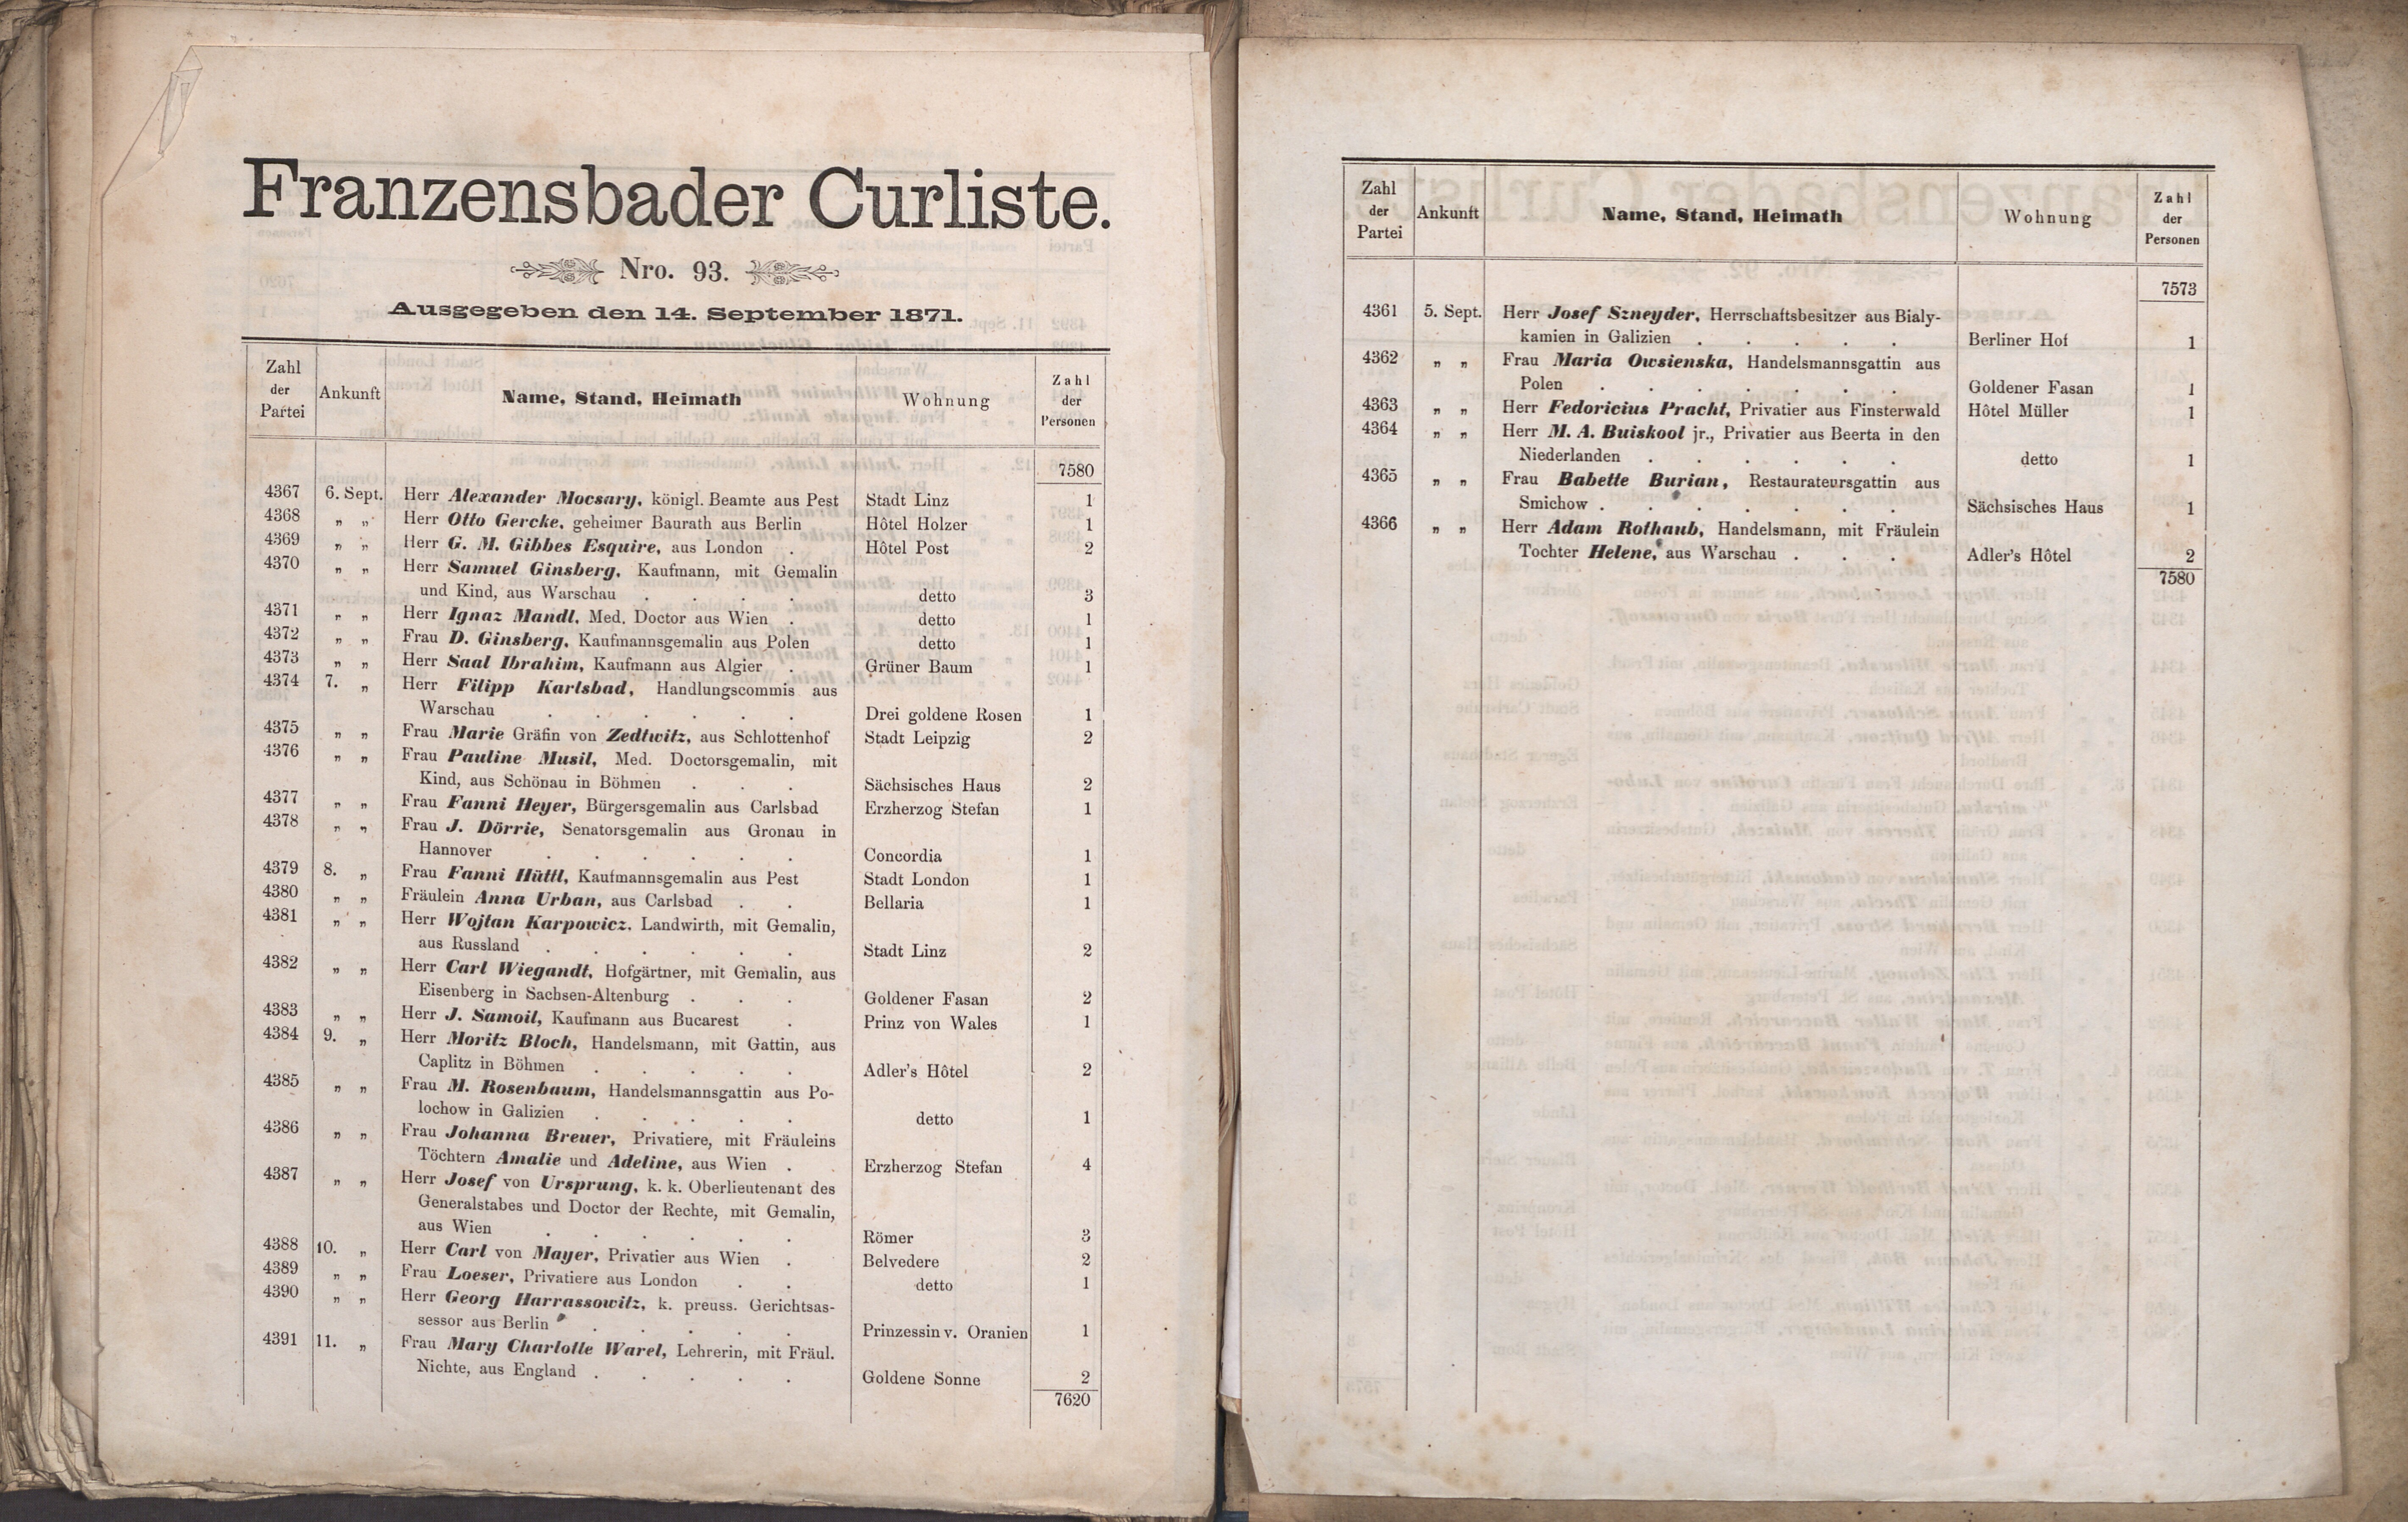 Franzensbader Curliste.
Nro. 93.
Ausgegeben den 14. September 1871.
Zahl der Partei | Ankunft | Name, Stand, Heimath | Wohnung | Zahl der Personen
7580
4367 6. Sept. Herr Alexander Mocsary, königl. Beamte aus Pest Stadt Linz 1
4368 „ „ Herr Otto Gercke, geheimer Baurath aus Berlin Hôtel Holzer 1
4369 „ „ Herr G. M. Gibbes Esquire, aus London . Hôtel Post 2
4370 „ „ Herr Samuel Ginsberg, Kaufmann, mit Gemalin
und Kind, aus Warschau . . . . detto 3
4371 „ „ Herr Ignaz Mandl, Med. Doctor aus Wien . detto 1
4372 „ „ Frau D. Ginsberg, Kaufmannsgemalin aus Polen detto 1
4373 „ „ Herr Saal Ibrahim, Kaufmann aus Algier . Grüner Baum 1
4374 7. „ Herr Filipp Karlsbad, Handlungscommis aus
Warschau . . . . . . Drei goldene Rosen 1
4375 „ „ Frau Marie Gräfin von Zedtwitz, aus Schlottenhof Stadt Leipzig 2
4376 „ „ Frau Pauline Musil, Med. Doctorsgemalin, mit
Kind, aus Schönau in Böhmen . . . Sächsisches Haus 2
4377 „ „ Frau Fanni Heyer, Bürgersgemalin aus Carlsbad Erzherzog Stefan 1
4378 „ „ Frau J. Dörrie, Senatorsgemalin aus Gronau in
Hannover . . . . . . Concordia 1
4379 8. „ Frau Fanni Hüttl, Kaufmannsgemalin aus Pest Stadt London 1
4380 „ „ Fräulein Anna Urban, aus Carlsbad . . Bellaria 1
4381 „ „ Herr Wojtan Karpowicz, Landwirth, mit Gemalin,
aus Russland . . . . . . Stadt Linz 2
4382 „ „ Herr Carl Wiegandt, Hofgärtner, mit Gemalin, aus
Eisenberg in Sachsen-Altenburg . . . Goldener Fasan 2
4383 „ „ Herr J. Samoil, Kaufmann aus Bucarest . Prinz von Wales 1
4384 9. „ Herr Moritz Bloch, Handelsmann, mit Gattin, aus
Caplitz in Böhmen . . . . . Adler's Hôtel 2
4385 „ „ Frau M. Rosenbaum, Handelsmannsgattin aus Po-
lochow in Galizien . . . . . detto 1
4386 „ „ Frau Johanna Breuer, Privatiere, mit Fräuleins
Töchtern Amalie und Adeline, aus Wien . Erzherzog Stefan 4
4387 „ „ Herr Josef von Ursprung, k. k. Oberlieutenant des
Generalstabes und Doctor der Rechte, mit Gemalin,
aus Wien . . . . . . Römer 3
4388 10. „ Herr Carl von Mayer, Privatier aus Wien . Belvedere 2
4389 „ „ Frau Loeser, Privatiere aus London . . detto 1
4390 „ „ Herr Georg Harrassowitz, k. preuss. Gerichtsas-
sessor aus Berlin . . . . . Prinzessin v. Oranien 1
4391 11. „ Frau Mary Charlotte Warel, Lehrerin, mit Fräul.
Nichte, aus England . . . . . Goldene Sonne 2
7620
Zahl der Partei | Ankunft | Name, Stand, Heimath | Wohnung | Zahl der Personen
7573
4361 5. Sept. Herr Josef Szneyder, Herrschaftsbesitzer aus Bialy-
kamien in Galizien . . . . . Berliner Hof 1
4362 „ „ Frau Maria Owsienska, Handelsmannsgattin aus
Polen . . . . . . . Goldener Fasan 1
4363 „ „ Herr Fedoricius Pracht, Privatier aus Finsterwald Hôtel Müller 1
4364 „ „ Herr M. A. Buiskool jr., Privatier aus Beerta in den
Niederlanden . . . . . . detto 1
4365 „ „ Frau Babette Burian, Restaurateursgattin aus
Smichow . . . . . . . Sächsisches Haus 1
4366 „ „ Herr Adam Rothaub, Handelsmann, mit Fräulein
Tochter Helene, aus Warschau . . . Adler's Hôtel 2
7580